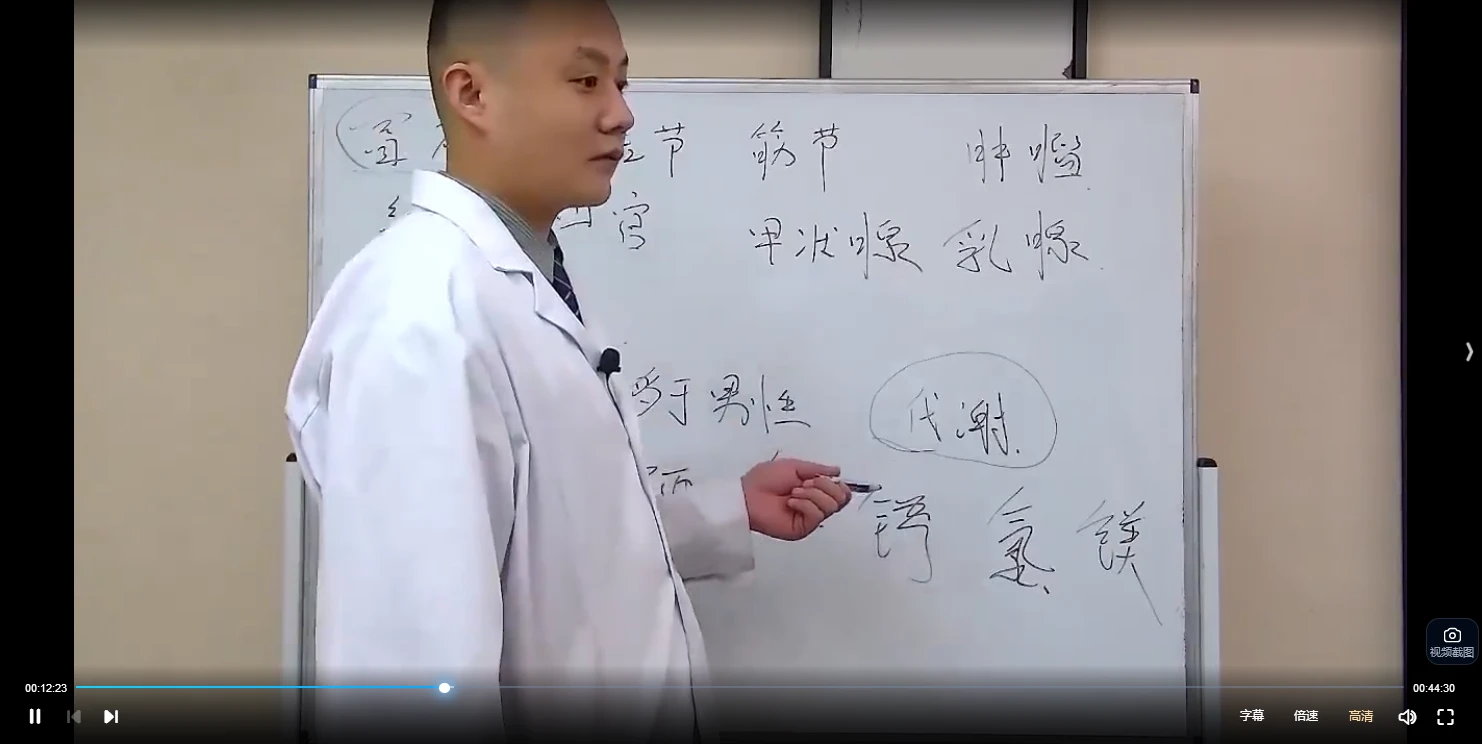 节 筋节 肿瘤
宫 甲状腺 乳腺
于男性 代谢
钙 氢 镁
视频截图
00:12:23 00:44:30
字幕 倍速 高清